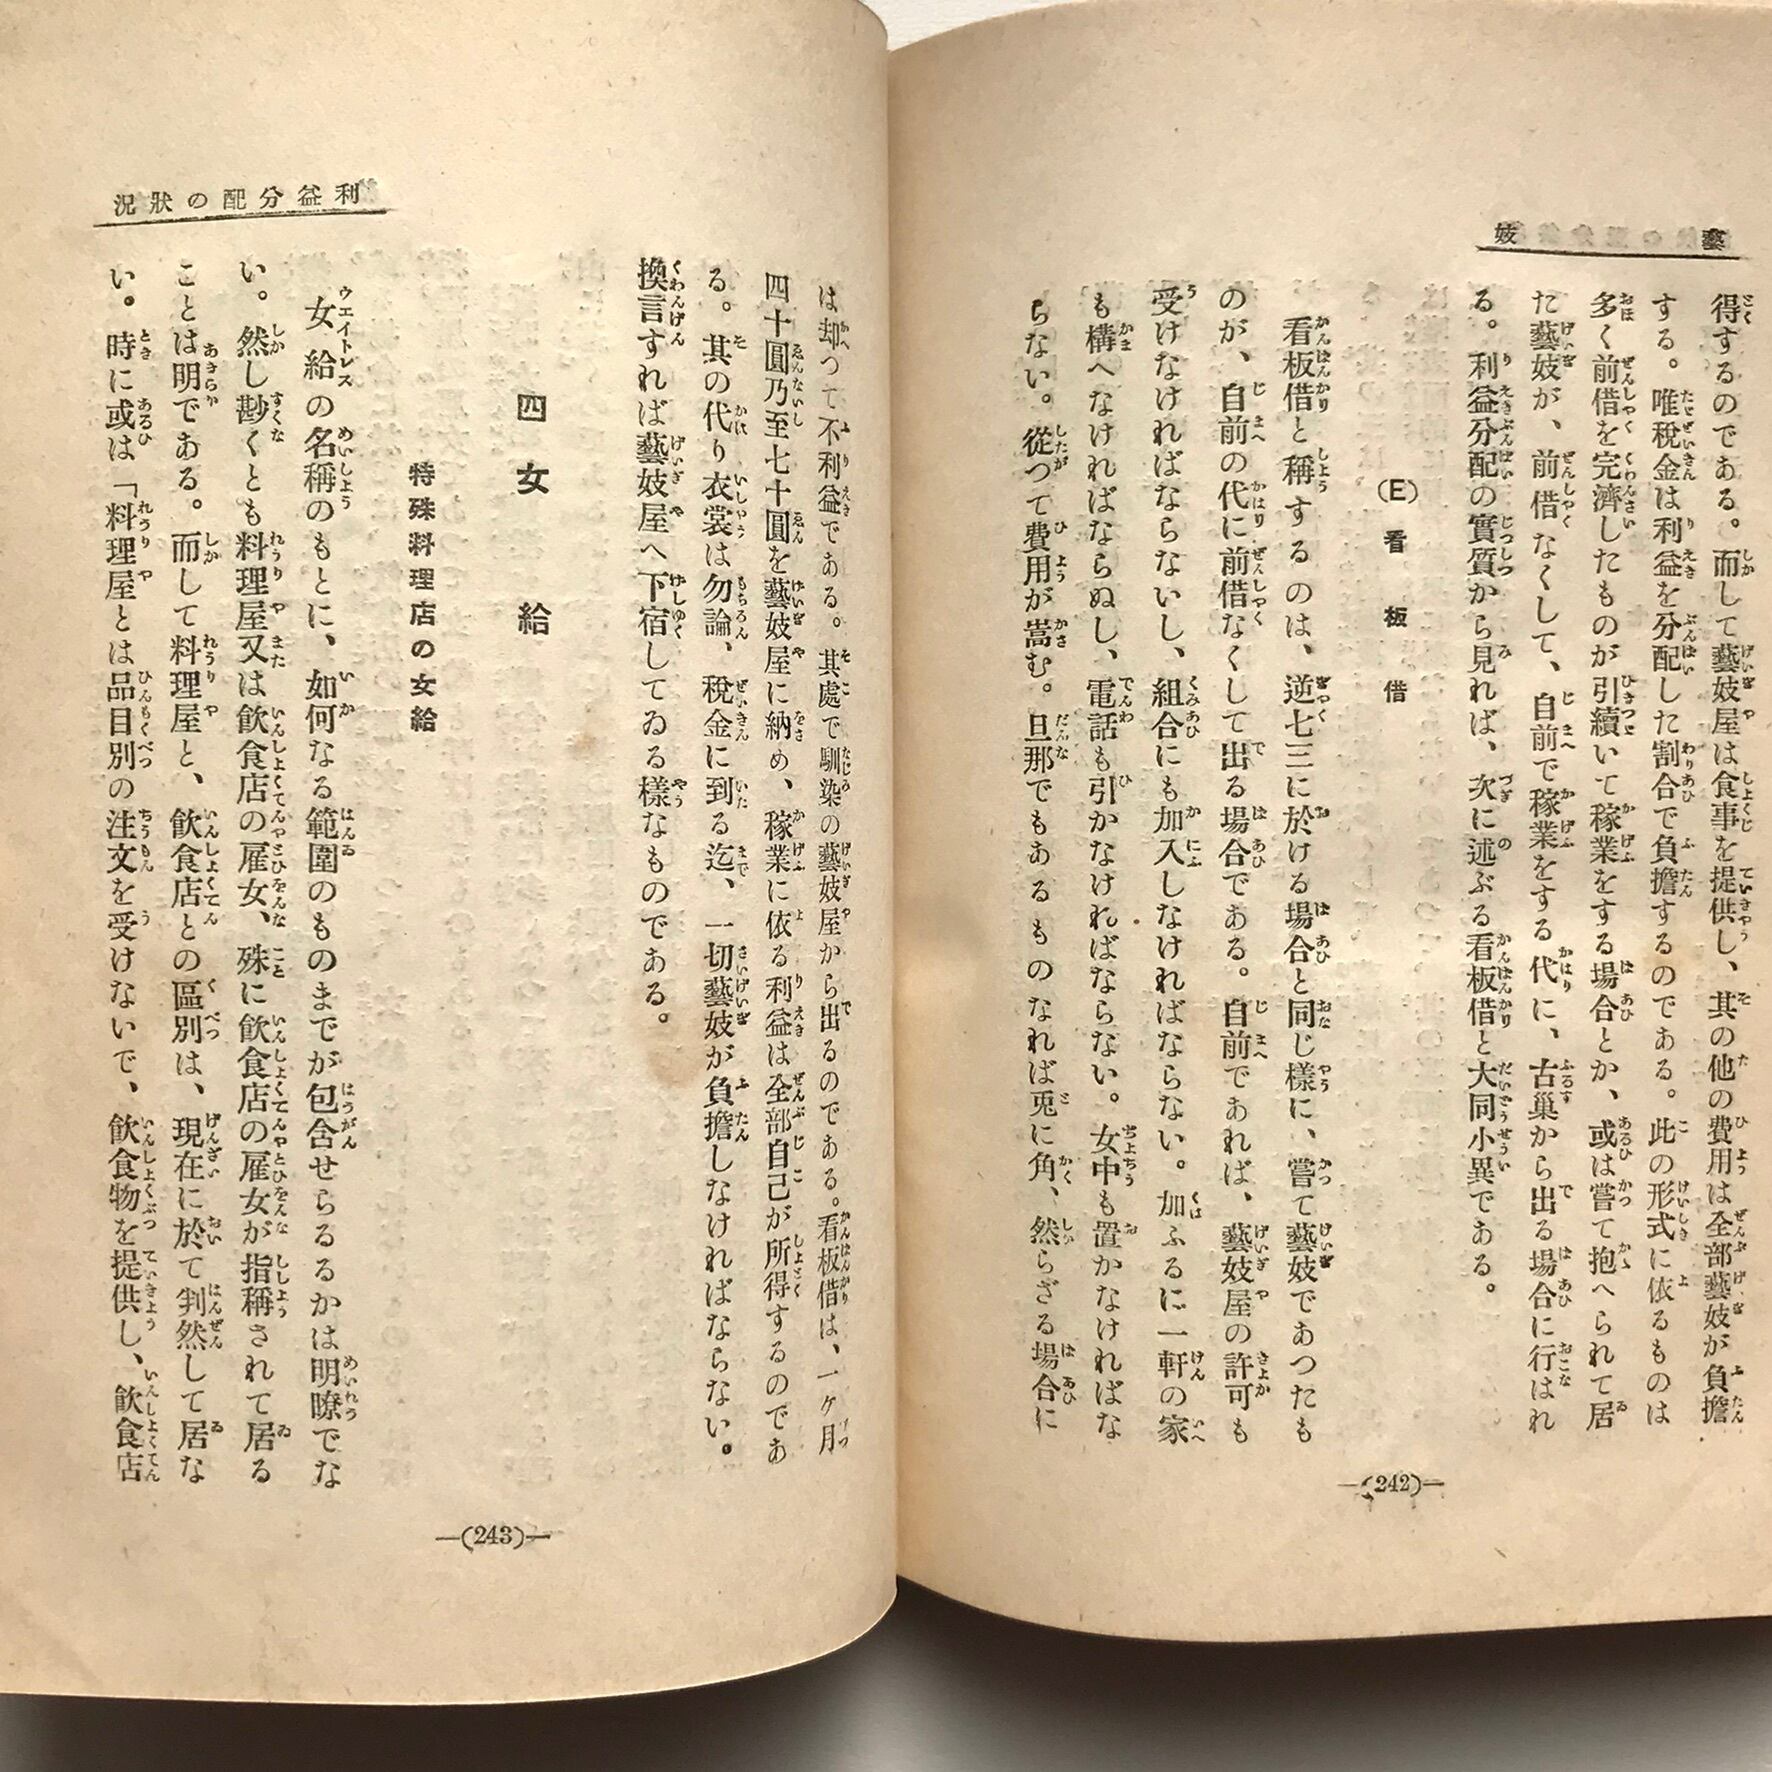 藝妓
得するのである。而して藝妓屋は食事を提供し、其の他の費用は全部藝妓が負擔
する。唯税金は利益を分配した割合で負擔するのである。此の形式に依るものは
多く前借を完濟したものが引續いて稼業をする場合とか、或は嘗て抱へられて居
た藝妓が、前借なくして、自前で稼業をする代に、古巣から出る場合に行はれ
る。利益分配の實質から見れば、次に述ぶる看板借と大同小異である。
(E) 看板借
看板借と稱するのは、逆七三に於ける場合と同じ樣に、嘗て藝妓であつたも
のが、自前の代に前借なくして出る場合である。自前であれば、藝妓屋の許可も
受けなければならないし、組合にも加入しなければならない。加ふるに一軒の家
も構へなければならぬし、電話も引かなければならない。女中も置かなければな
らない。從つて費用が嵩む。旦那でもあるものなれば兎に角、然らざる場合に
―(242)―
利益分配の狀況
は却つて不利益である。其處で馴染の藝妓屋から出るのである。看板借は、一ケ月
四十圓乃至七十圓を藝妓屋に納め、稼業に依る利益は全部自己が所得するのであ
る。其の代り衣裳は勿論、税金に到る迄、一切藝妓が負擔しなければならない。
換言すれば藝妓屋へ下宿してゐる樣なものである。
四 女給
特殊料理店の女給
女給の名稱のもとに、如何なる範圍のものまでが包含せらるるかは明瞭でな
い。然し尠くとも料理屋又は飲食店の雇女、殊に飲食店の雇女が指稱されて居る
ことは明である。而して料理屋と、飲食店との區別は、現在に於て判然して居な
い。時に或は「料理屋とは品目別の注文を受けないで、飲食物を提供し、飲食店
―(243)―